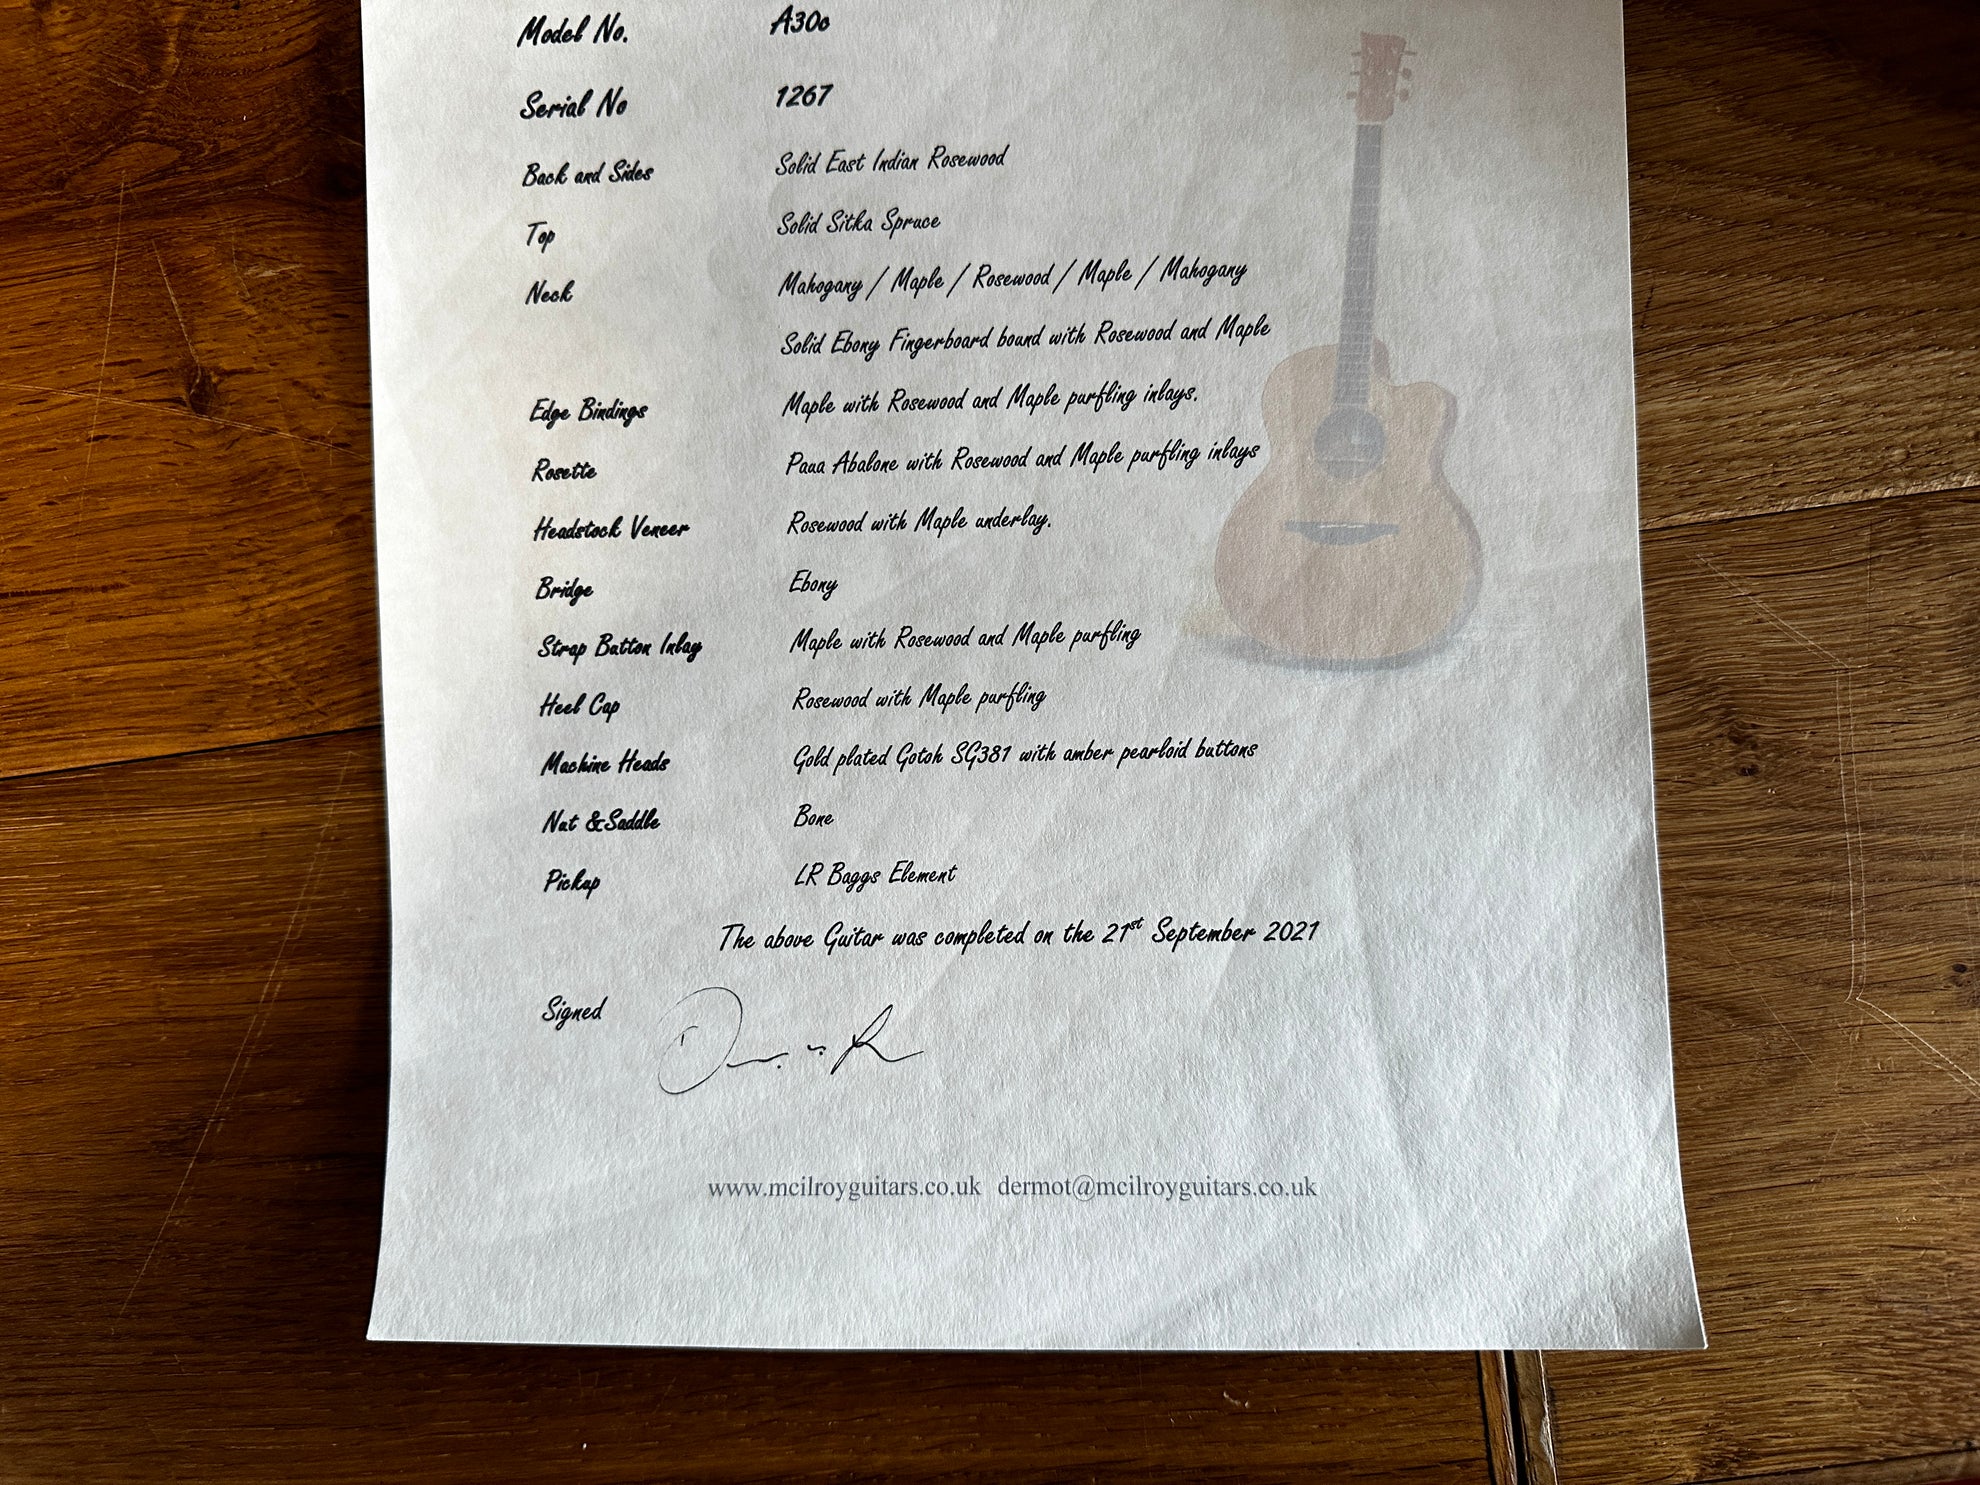 Model No. A30c
Serial No 1267
Back and Sides Solid East Indian Rosewood
Top Solid Sitka Spruce
Neck Mahogany / Maple / Rosewood / Maple / Mahogany
Solid Ebony Fingerboard bound with Rosewood and Maple
Edge Bindings Maple with Rosewood and Maple purfling inlays.
Rosette Paua Abalone with Rosewood and Maple purfling inlays
Headstock Veneer Rosewood with Maple underlay.
Bridge Ebony
Strap Button Inlay Maple with Rosewood and Maple purfling
Heel Cap Rosewood with Maple purfling
Machine Heads Gold plated Gotoh SG381 with amber pearloid buttons
Nut &Saddle Bone
Pickup LR Baggs Element
The above Guitar was completed on the 21st September 2021
Signed
www.mcilroyguitars.co.uk dermot@mcilroyguitars.co.uk